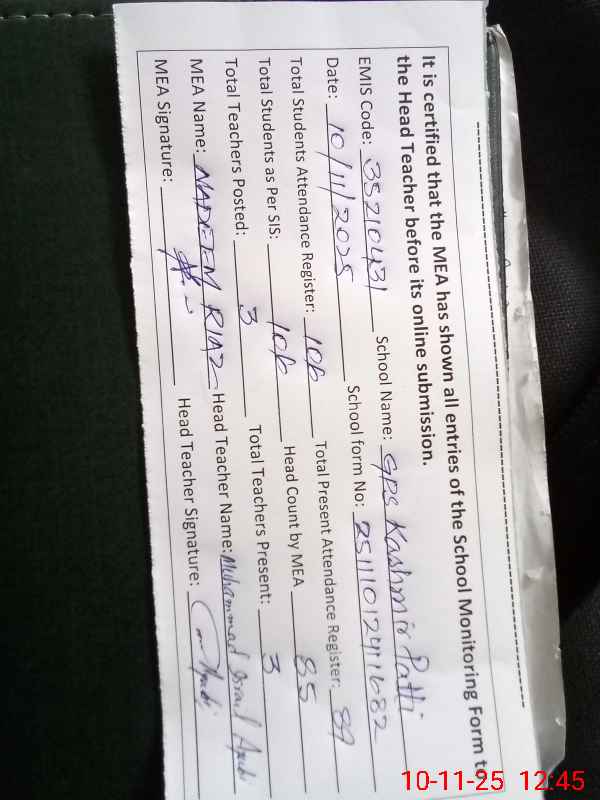 It is certified that the MEA has shown all entries of the School Monitoring Form to
the Head Teacher before its online submission.
EMIS Code: 35210431 School Name: GPS Kashmir Patti
Date: 10/11/2025 School form No: 251110124111682
Total Students Attendance Register: 106 Total Present Attendance Register: 89
Total Students as Per SIS: 106 Head Count by MEA 85
Total Teachers Posted: 3 Total Teachers Present: 3
MEA Name: NADEEM RIAZ Head Teacher Name: Muhammad
MEA Signature: Head Teacher Signature:
10-11-25 12:45